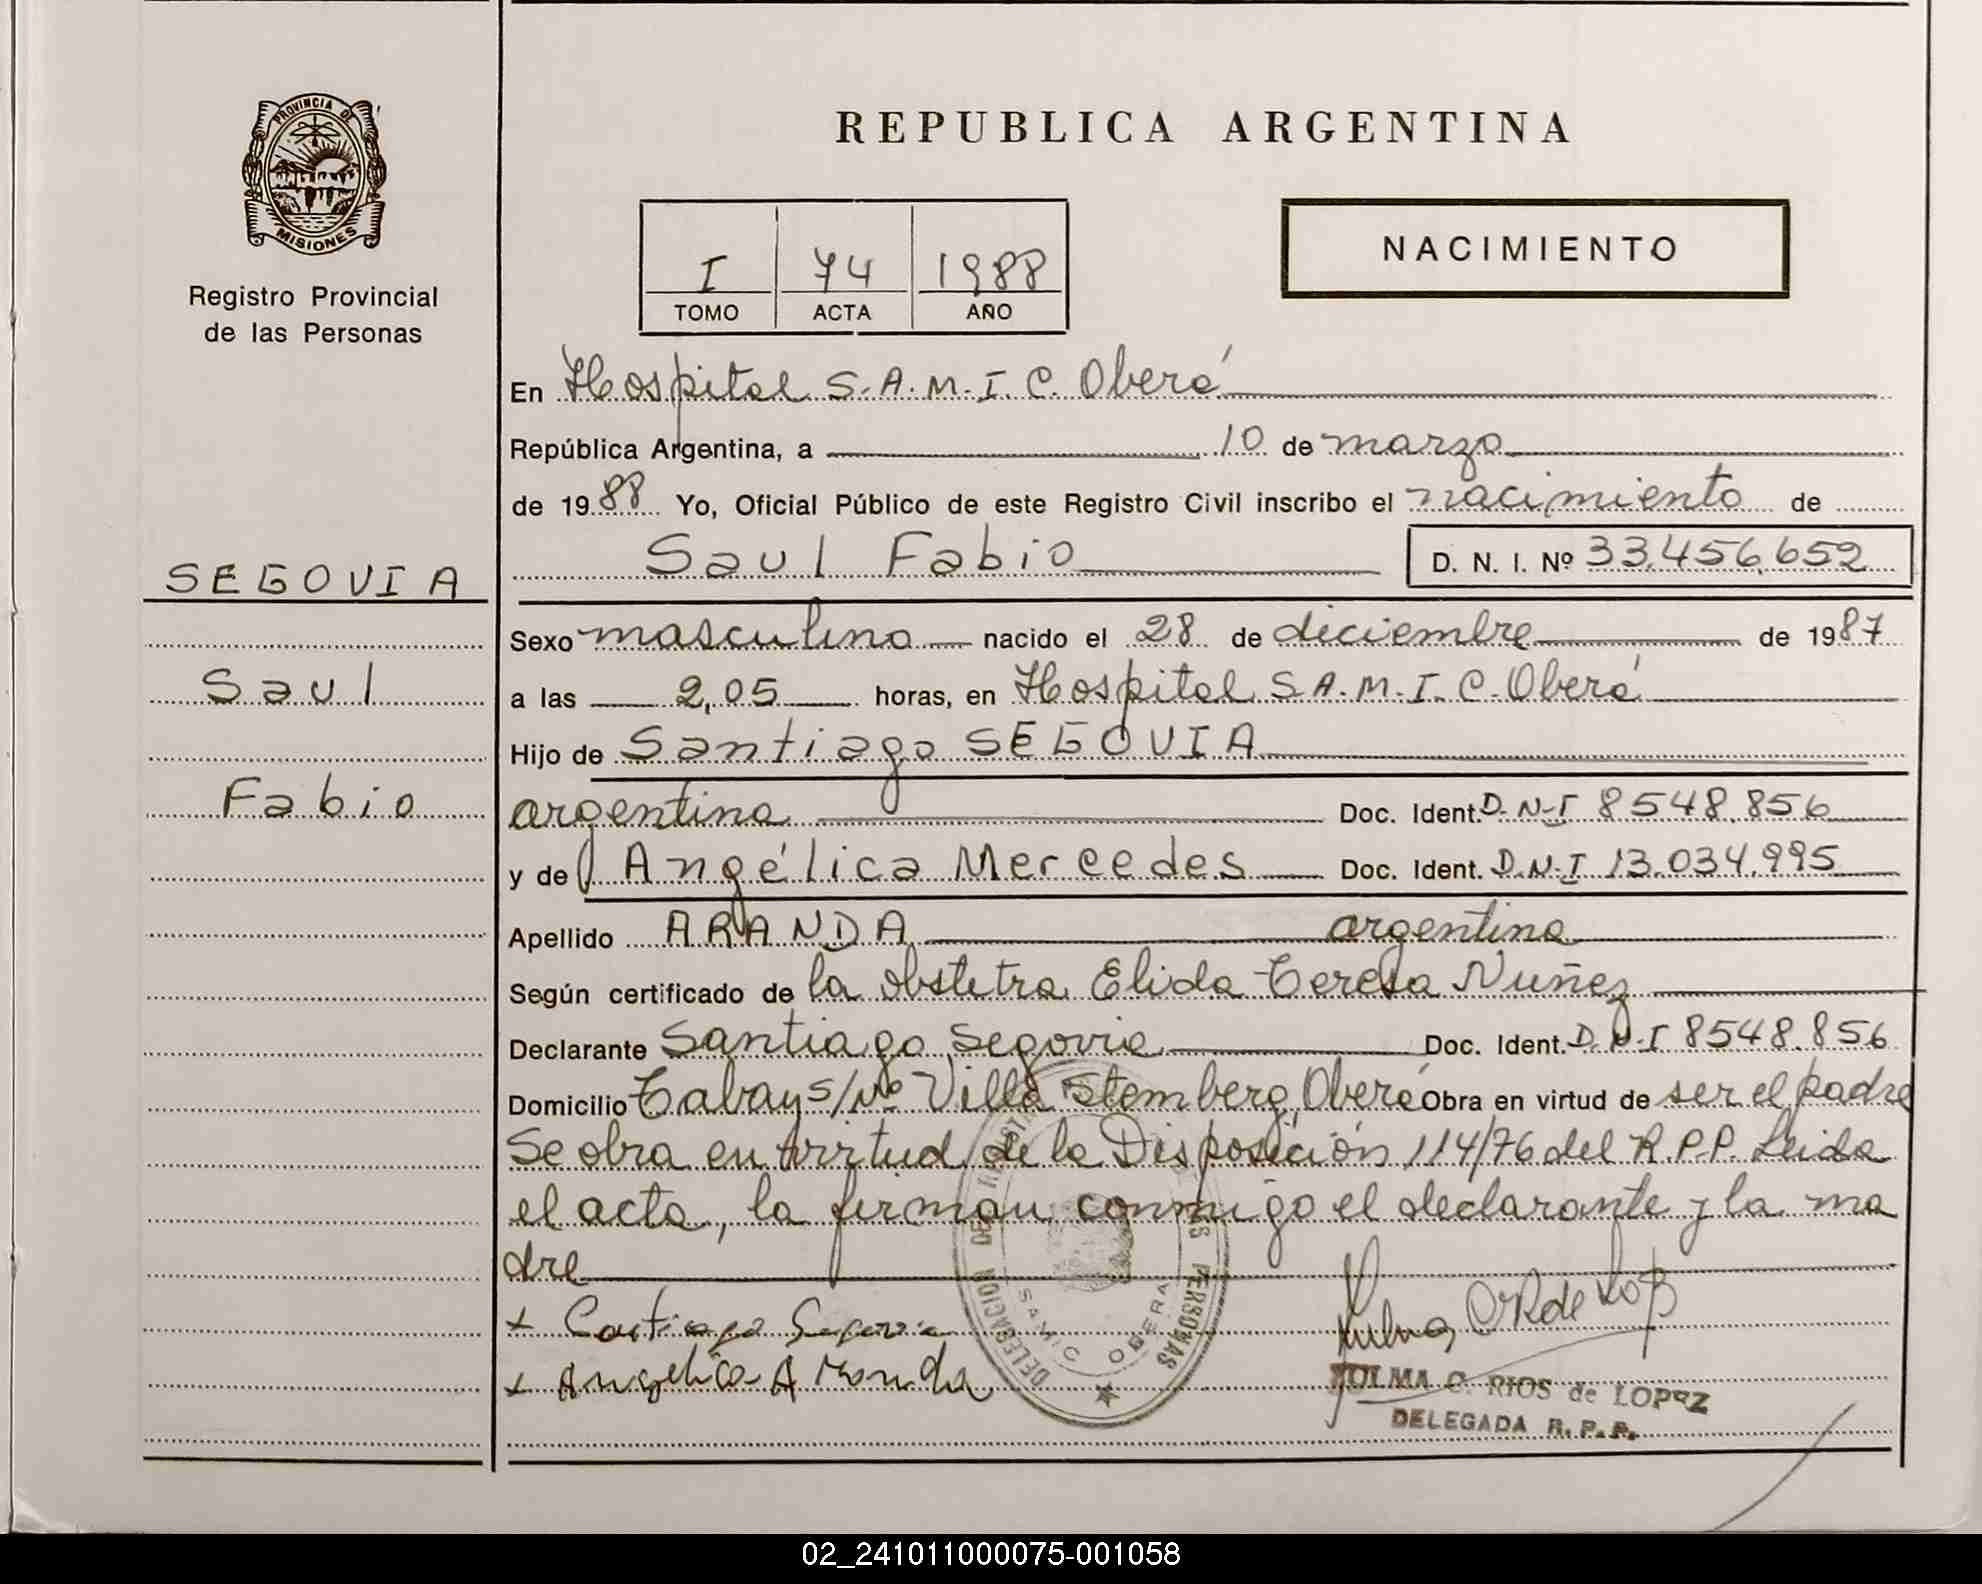 PROVINCIA DE
MISIONES
Registro Provincial
de las Personas
SEGOVIA
Saul
Fabio
REPUBLICA ARGENTINA
I 74 1988
TOMO ACTA AÑO
NACIMIENTO
En Hospital S.A.M.I.C. Oberá
República Argentina, a 10 de marzo
de 1988 Yo, Oficial Público de este Registro Civil inscribo el nacimiento de
Saul Fabio D. N. I. Nº 33.456.652
Sexo masculino nacido el 28 de diciembre de 1987
a las 2,05 horas, en Hospital S.A.M.I.C. Oberá
Hijo de Santiago SEGOVIA
argentina Doc. Ident. D.N.I 8548.856
y de Angélica Mercedes Doc. Ident. D.N.I 13.034.995
Apellido ARANDA argentina
Según certificado de la obstetra Elida Teresa Nuñez
Declarante Santiago Segovia Doc. Ident. D.N.I 8548.856
Domicilio Tabay s/Nº Villa Stemberg, Oberá Obra en virtud de ser el padre
Se obra en virtud de la Disposición 114/76 del R.P.P. Leida
el acta, la firman conmigo el declarante y la ma
dre
+ Santiago Segovia
+ Angelica Aranda
DELEGACION DEL REGISTRO PERSONAS
SAMIC OBERA
C. RIOS de LOPEZ
DELEGADA R. P. P.
02_241011000075-001058